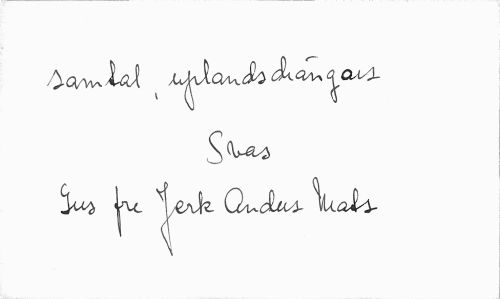 samtal, uplandsdrängars
Svas
Gus fre Jerk Anders Mats